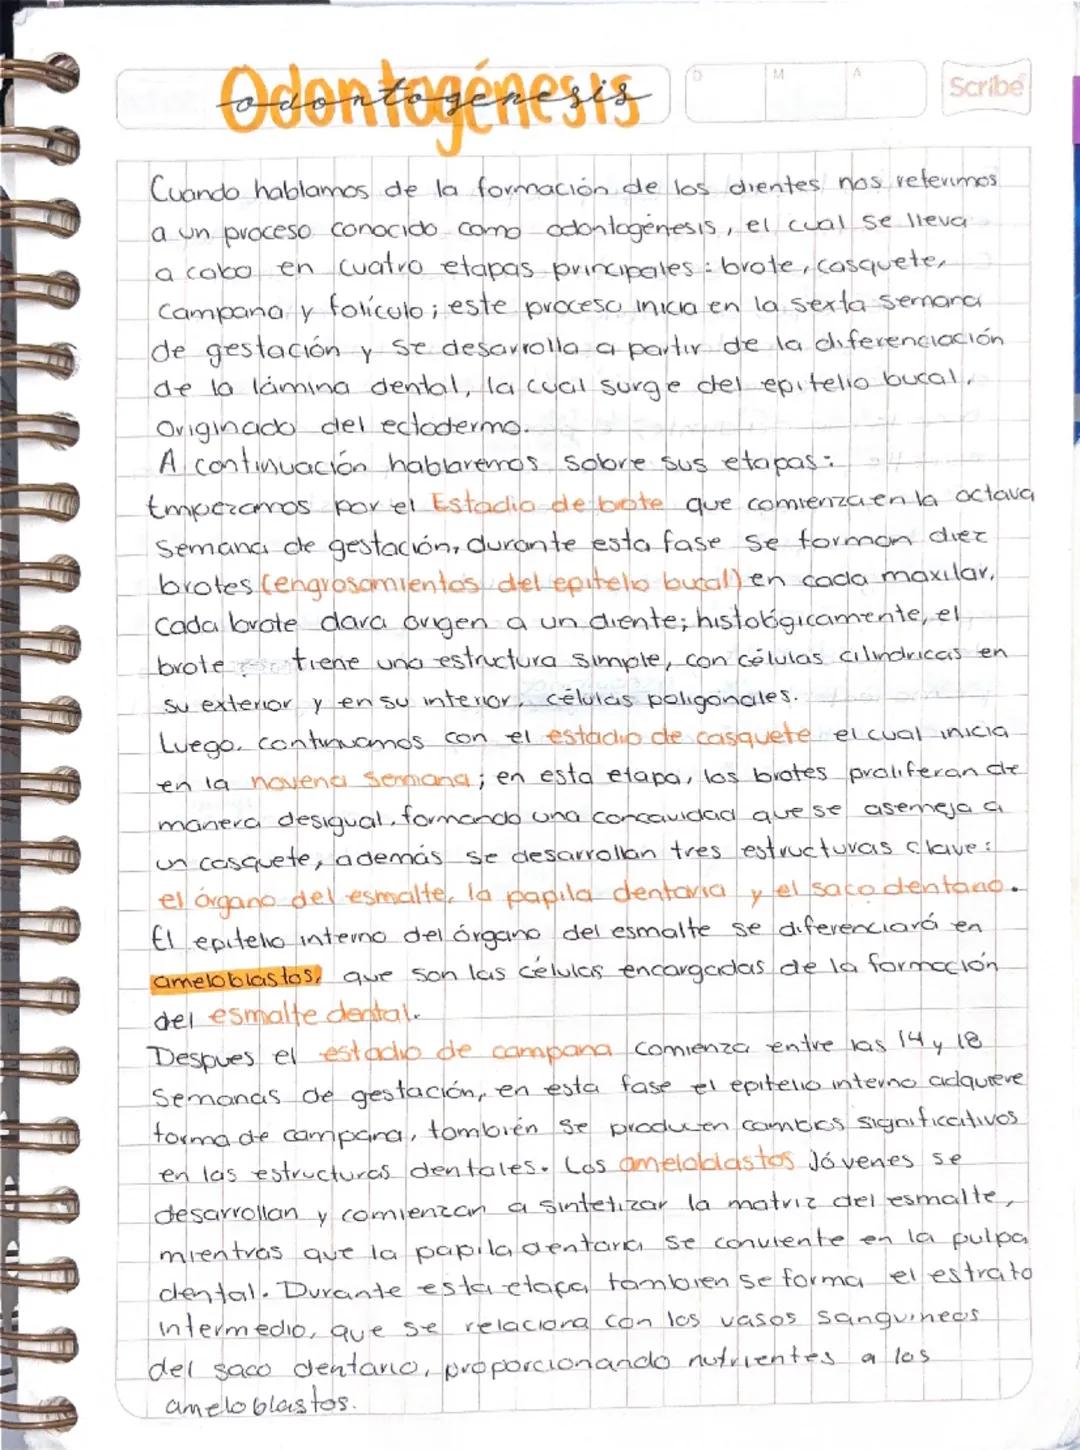 Odontogénesis
odontogenesis
D M A
Scribe
Cuando hablamos de la formación de los dientes nos referimos
a un proceso conocido como odontogénesis, el cual se lleva
a cabo en cuatro etapas principales: brote, casquete,
campana y folículo; este proceso inicia en la sexta semana
de gestación y se desarrolla a partir de la diferenciación
de la lámina dental, la cual surge del epitelio bucal,
originado del ectodermo.
A continuación hablaremos sobre sus etapas:
Empezamos por el Estadio de brote que comienza en la octava
semana de gestación, durante esta fase se forman diez
brotes (engrosamientos del epitelio bucal) en cada maxilar,
cada brote dara origen a un diente; histológicamente, el
brote tiene una estructura simple, con células cilindricas en
su exterior y en su interior, células poligonales.
Luego, continuamos con el estadio de casquete el cual inicia
en la novena semana; en esta etapa, los brotes proliferan de
manera desigual, formando una concavidad que se asemeja a
un casquete, además se desarrollan tres estructuras clave:
el órgano del esmalte, la papila dentaria y el saco dentario.
El epitelio interno del órgano del esmalte se diferenciará en
ameloblastos, que son las células encargadas de la formación
del esmalte dental.
Despues el estadio de campana comienza entre las 14 y 18
semanas de gestación, en esta fase el epitelio interno adquiere
forma de campana, también se producen cambios significativos
en las estructuras dentales. Los ameloblastos Jóvenes se
desarrollan y comienzan a sintetizar la matriz del esmalte,
mientras que la papila dentaria se convierte en la pulpa
dental. Durante esta etapa tambien se forma el estrato
intermedio, que se relaciona con los vasos sanguineos
del saco dentario, proporcionando nutrientes a los
ameloblastos.